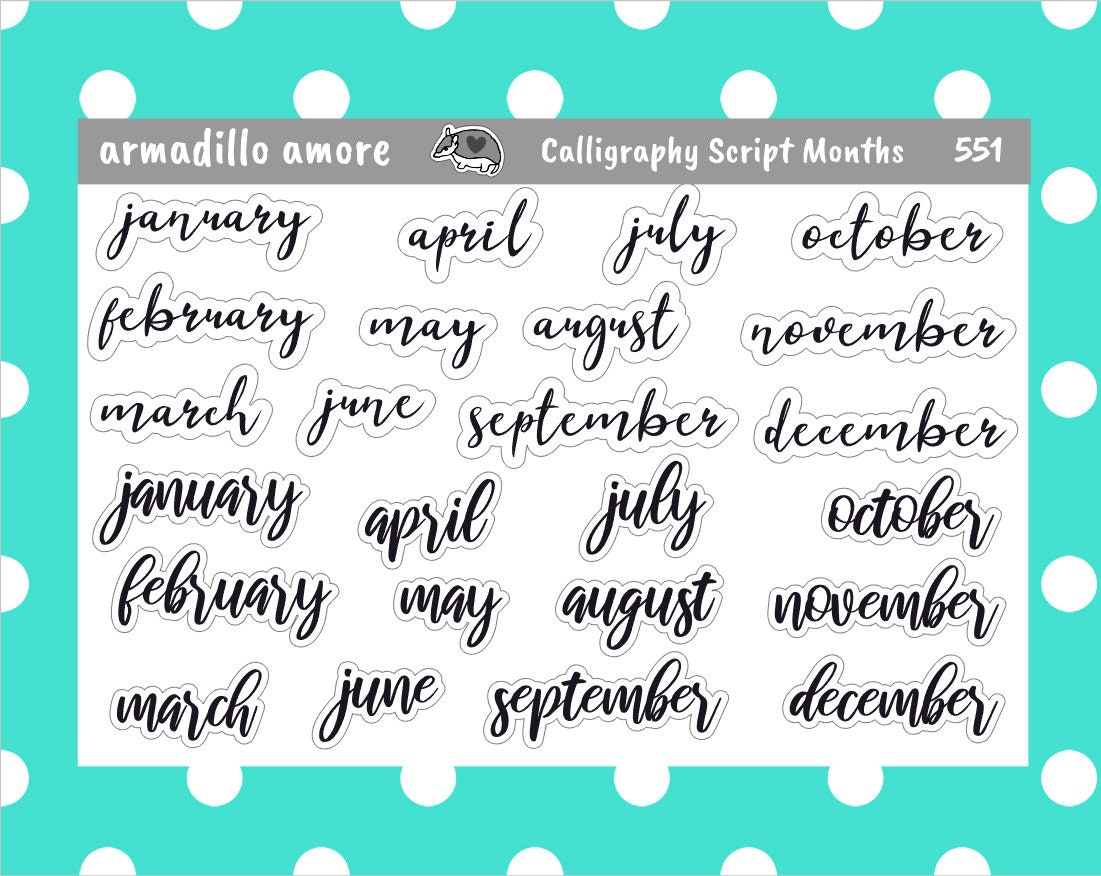 armadillo amore Calligraphy Script Months 551
january april july october
february may august november
march june september december
january april july october
february may august november
march june september december